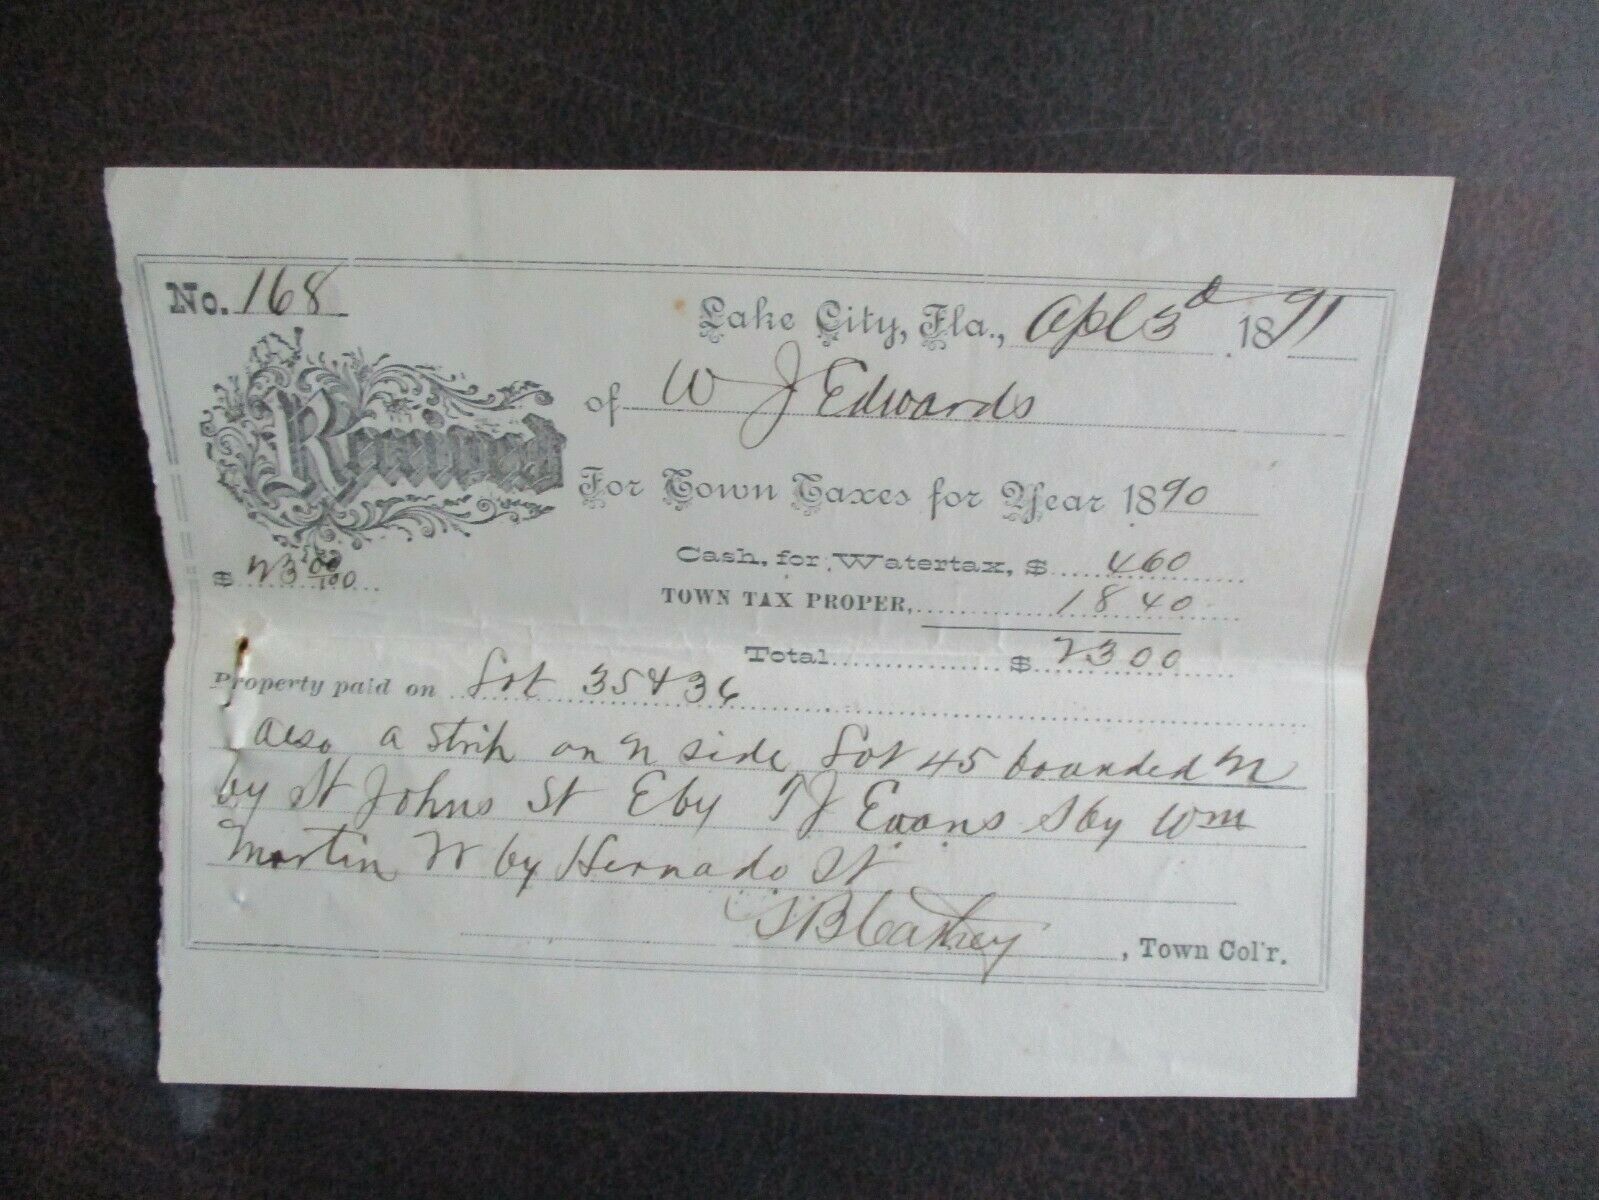 No. 168
Lake City, Fla., Apl 3d 1891
Received of W J Edwards
For Town Taxes for Year 1890
$ 23 00/100
Cash, for Watertax, $ 4 60
TOWN TAX PROPER, 18 40
Total $ 23 00
Property paid on Lot 35 & 36
also a strip on N side Lot 45 bounded N
by St Johns St E by T J Evans S by Wm
Martin W by Hernado St
Cathey, Town Col'r.